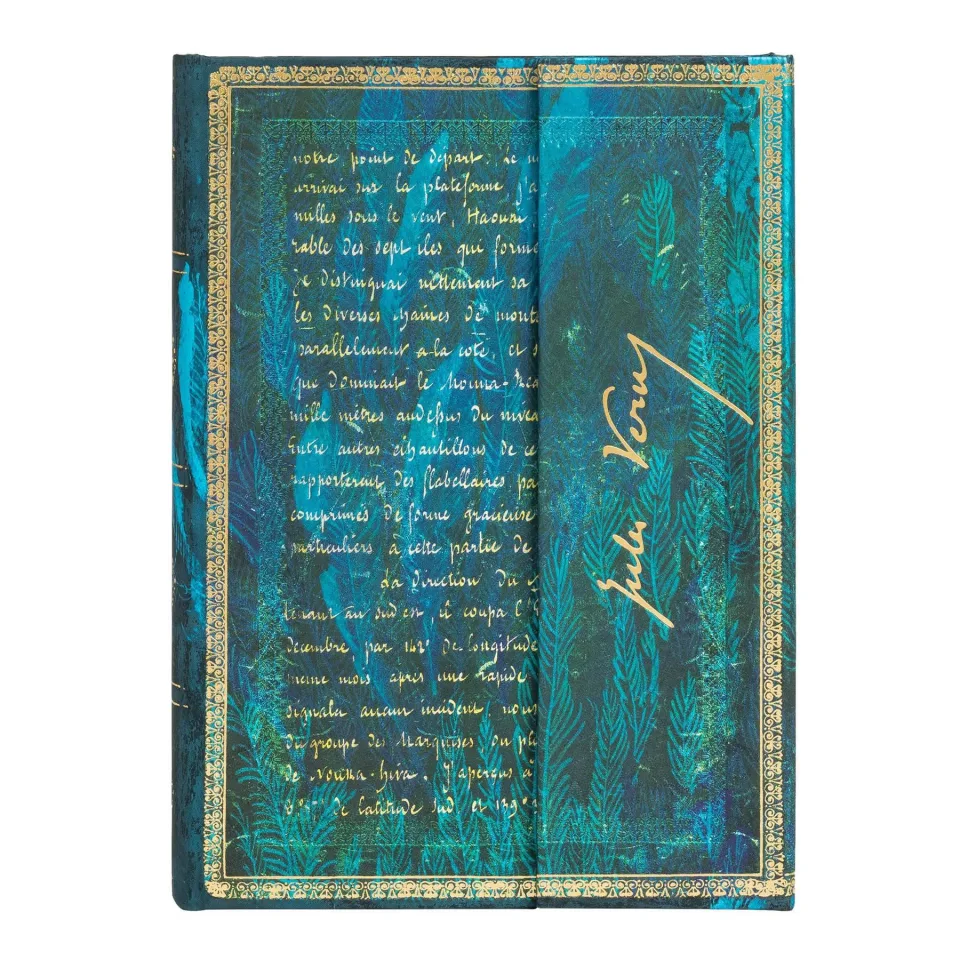 notre point de départ. Le
arrivai sur la plateforme, j'a
milles sous le vent, Haouai,
rable des sept iles qui forme
je distinguai nettement sa
les diverses chaines de
parallelement a la cote, et
que dominait le Mouna-Rea
mille mètres audessus du nivea
Entre autres échantillons de ce
rapporterent des flabellaires pa
comprimés de forme gracieuse
particuliers à cette partie de
La direction du
tenant au sud est, il coupa l'
décembre par 142° de longitude
meme mois après une rapide
signala aucun incident, nous
du groupe des Marquises
de Nouka-hiva. J'aperçus à
de latitude sud et 139°
Jules Verne